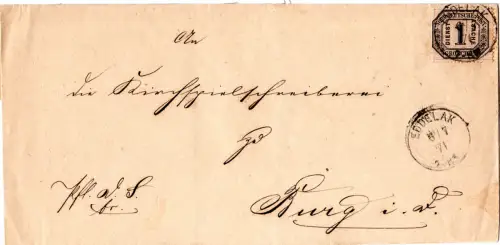 An
die Kirchspielschreiberei
zu
Burg i. D.
EDDELAK
8/7
71
1